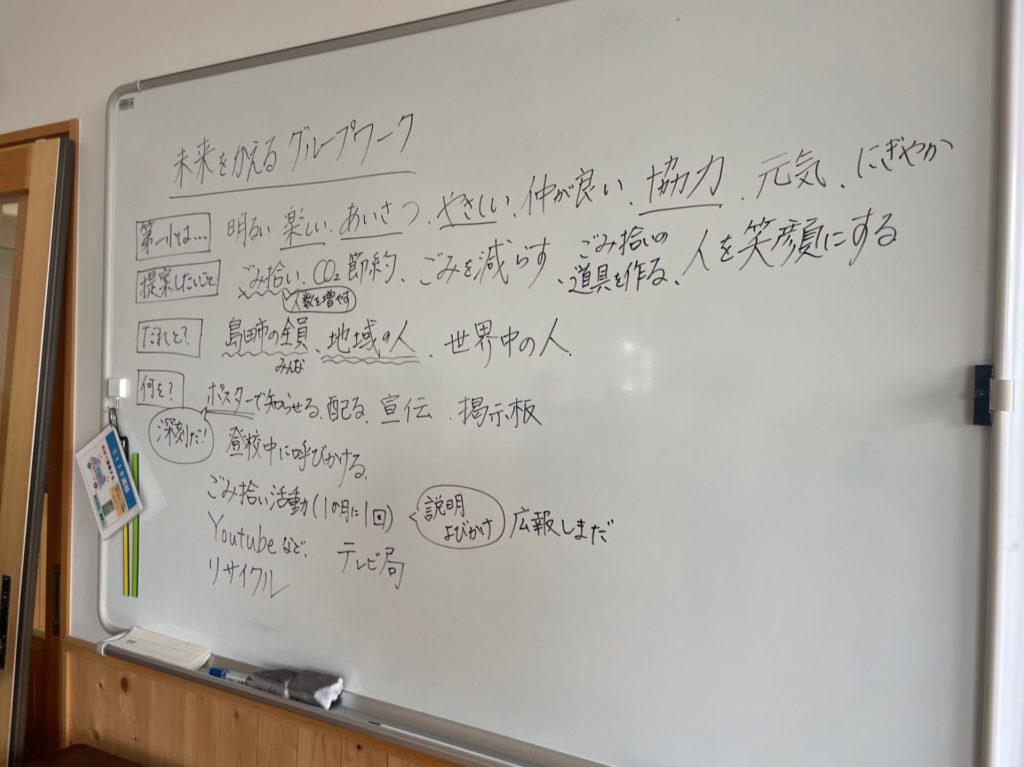 未来をかえる グループワーク
第一小は… 明るい 楽しい、あいさつ、やさしい、仲が良い、協力、元気、にぎやか
提案したいこと ごみ拾い、CO₂節約、ごみを減らす、ごみ拾いの道具を作る、人を笑顔にする
人数を増やす
だれと? 島田市の全員、地域の人、世界中の人
みんな
何を? ポスターで知らせる、配る、宣伝、掲示板
深刻だ!
登校中に呼びかける。
ごみ拾い活動(1ヶ月に1回) 説明 よびかけ 広報しまだ
Youtubeなど、テレビ局
リサイクル